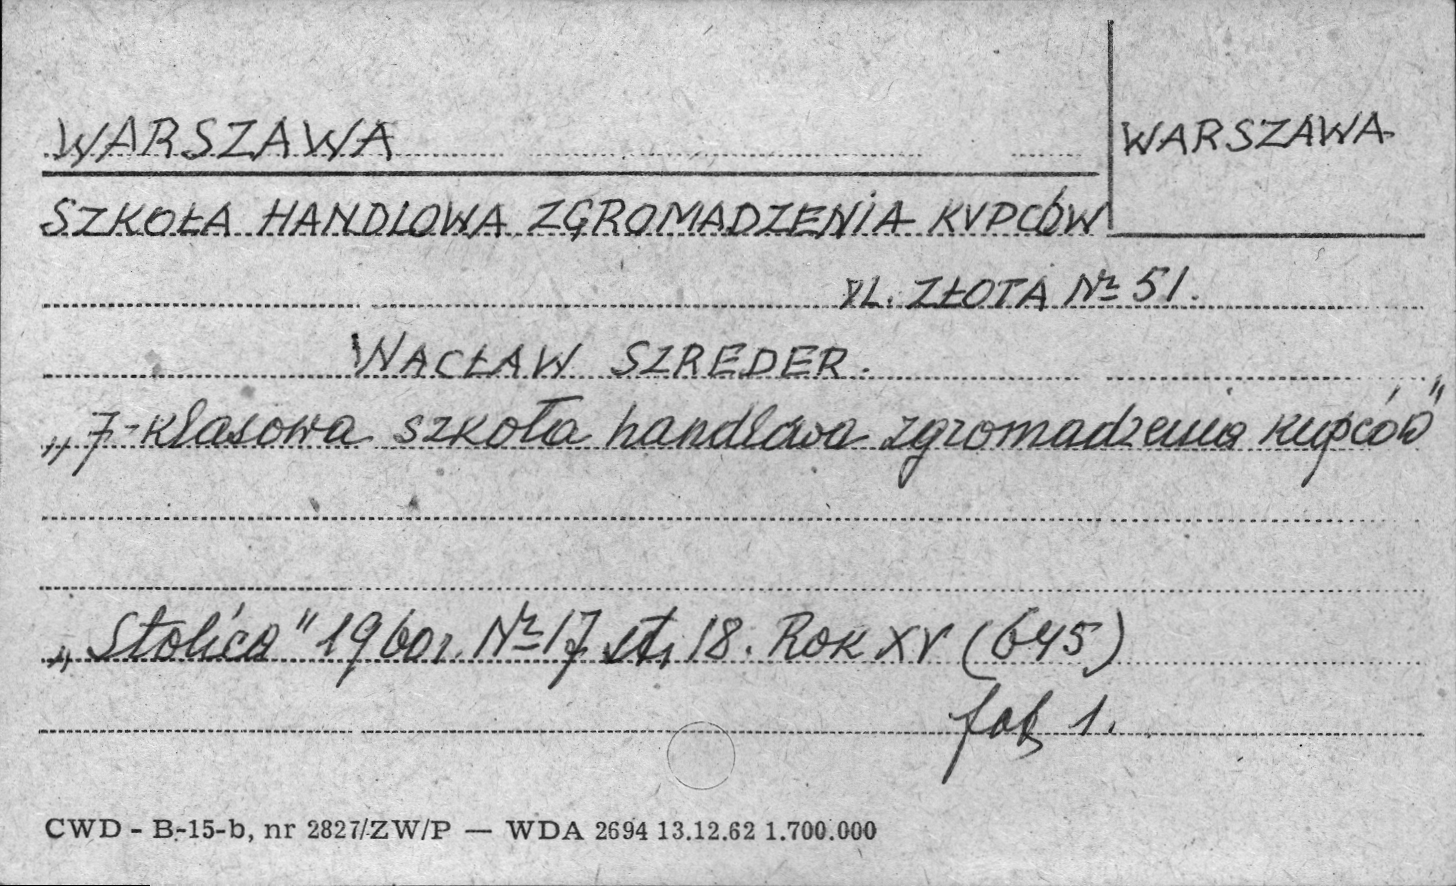 WARSZAWA
WARSZAWA
SZKOŁA HANDLOWA ZGROMADZENIA KUPCÓW
UL. ZŁOTA № 51.
WACŁAW SZREDER.
„7-klasowa szkoła handlowa zgromadzenia kupców"
„Stolica" 1960r. № 17 st. 18. Rok XV (645)
fot. 1.
CWD - B-15-b, nr 2827/ZW/P — WDA 2694 13.12.62 1.700.000